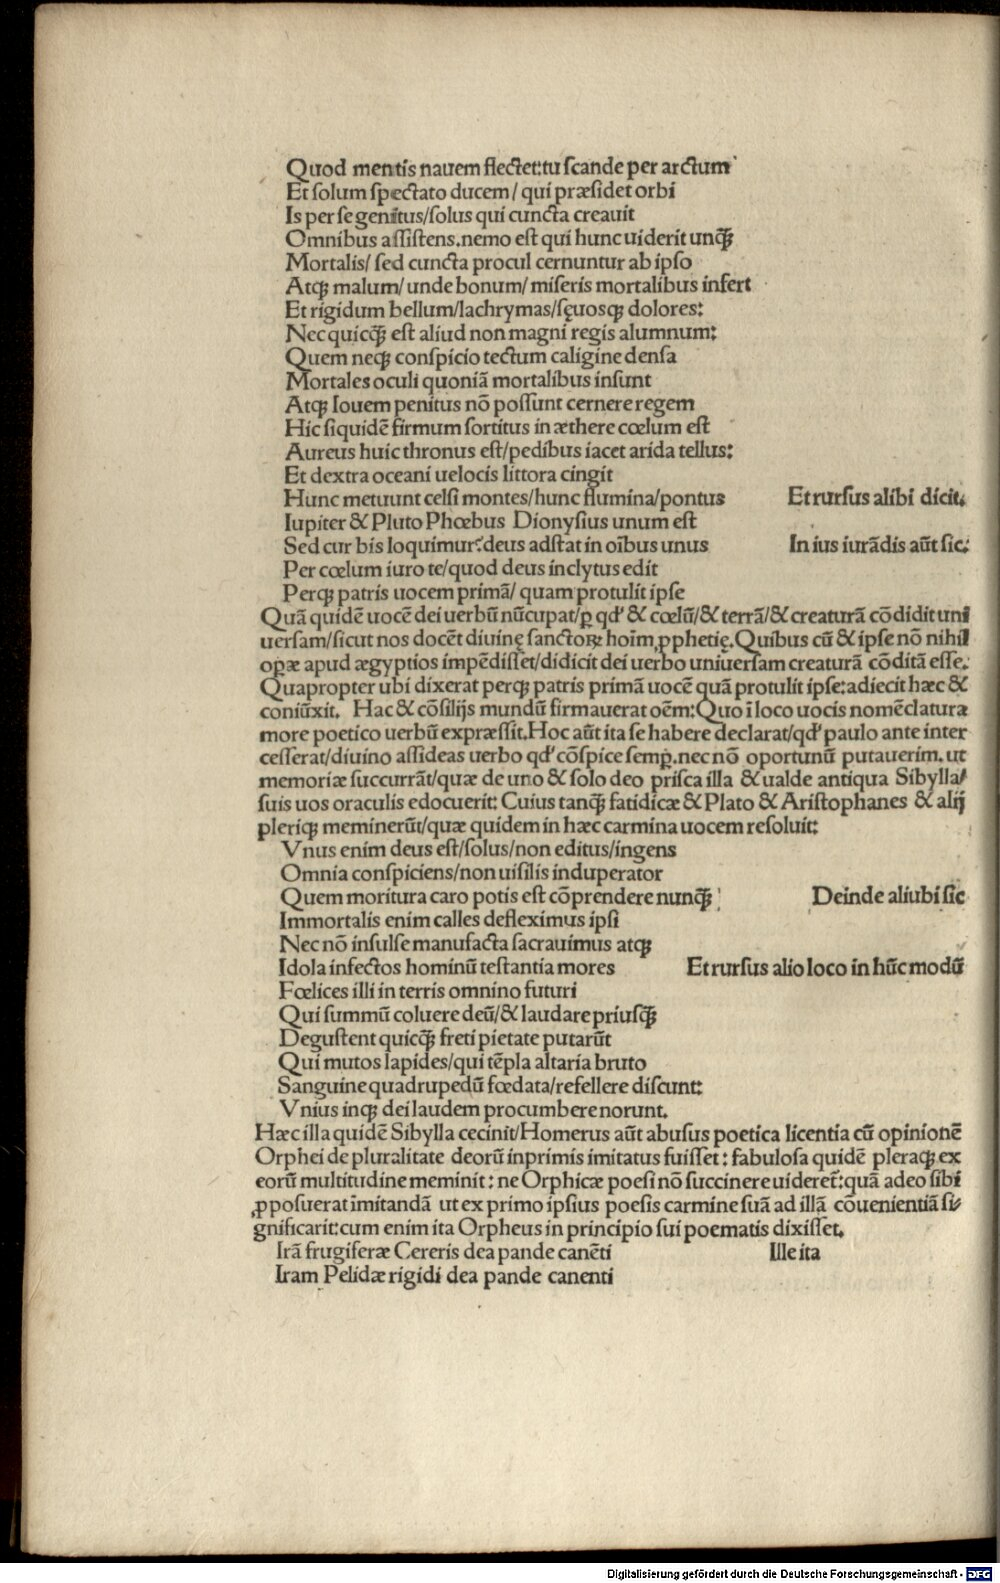 Quod mentis nauem flectet:tu scande per arctum
Et solum spectato ducem/ qui præsidet orbi
Is per se genitus/solus qui cuncta creauit
Omnibus assistens.nemo est qui hunc uiderit unq̃ꝫ
Mortalis/ sed cuncta procul cernuntur ab ipso
Atqꝫ malum/ unde bonum/ miseris mortalibus infert
Et rigidum bellum/lachrymas/sęuosqꝫ dolores:
Nec quicq̃ꝫ est aliud non magni regis alumnum:
Quem neqꝫ conspicio tectum caligine densa
Mortales oculi quoniã mortalibus insunt
Atqꝫ Iouem penitus nõ possunt cernere regem
Hic siquidẽ firmum sortitus in æthere cœlum est
Aureus huic thronus est/pedibus iacet arida tellus:
Et dextra oceani uelocis littora cingit
Hunc metuunt celsi montes/hunc flumina/pontus Et rursus alibi dicit.
Iupiter & Pluto Phœbus Dionysius unum est
Sed cur bis loquimur?deus adstat in oĩbus unus In ius iurãdis aũt sic:
Per cœlum iuro te/quod deus inclytus edit
Perqꝫ patris uocem primã/ quam protulit ipse
Quã quidẽ uocẽ dei uerbũ nũcupat/ꝑ qd' & cœlũ/& terrã/& creaturã cõdidit uni
uersam/sicut nos docẽt diuinę sanctoꝝ hoĩm ꝓphetię.Quibus cũ & ipse nõ nihil
oꝑæ apud ægyptios impẽdisset/didicit dei uerbo uniuersam creaturã cõditã esse.
Quapropter ubi dixerat perqꝫ patris primã uocẽ quã protulit ipse:adiecit hæc &
coniũxit. Hac & cõsilijs mundũ firmauerat oẽm:Quo ĩ loco uocis nomẽclatura
more poetico uerbũ expræssit.Hoc aũt ita se habere declarat/qd' paulo ante inter
cesserat/diuino assideas uerbo qd' cõspice semꝑ.nec nõ oportunũ putauerim.ut
memoriæ succurrãt/quæ de uno & solo deo prisca illa & ualde antiqua Sibylla/
suis uos oraculis edocuerit: Cuius tanq̃ꝫ fatidicæ & Plato & Aristophanes & alij
pleriqꝫ meminerũt/quæ quidem in hæc carmina uocem resoluit:
Vnus enim deus est/solus/non editus/ingens
Omnia conspiciens/non uisilis induperator
Quem moritura caro potis est cõprendere nunq̃ꝫ Deinde aliubi sic
Immortalis enim calles defleximus ipsi
Nec nõ insulse manufacta sacrauimus atqꝫ
Idola infectos hominũ testantia mores Et rursus alio loco in hũc modũ
Fœlices illi in terris omnino futuri
Qui summũ coluere deũ/& laudare priusq̃ꝫ
Degustent quicq̃ꝫ freti pietate putarũt
Qui mutos lapides/qui tẽpla altaria bruto
Sanguine quadrupedũ fœdata/refellere discunt:
Vnius inqꝫ dei laudem procumbere norunt.
Hæc illa quidẽ Sibylla cecinit/Homerus aũt abusus poetica licentia cũ opinionẽ
Orphei de pluralitate deorũ inprimis imitatus fuisset: fabulosa quidẽ pleraqꝫ ex
eorũ multitudine meminit: ne Orphicæ poesi nõ succinere uideret̃:quã adeo sibi
ꝓposuerat ĩmitandã ut ex primo ipsius poesis carmine suã ad illã cõuenientiã si-
gnificarit:cum enim ita Orpheus in principio sui poematis dixisset.
Irã frugiferæ Cereris dea pande canẽti Ille ita
Iram Pelidæ rigidi dea pande canenti
Digitalisierung gefördert durch die Deutsche Forschungsgemeinschaft - DFG